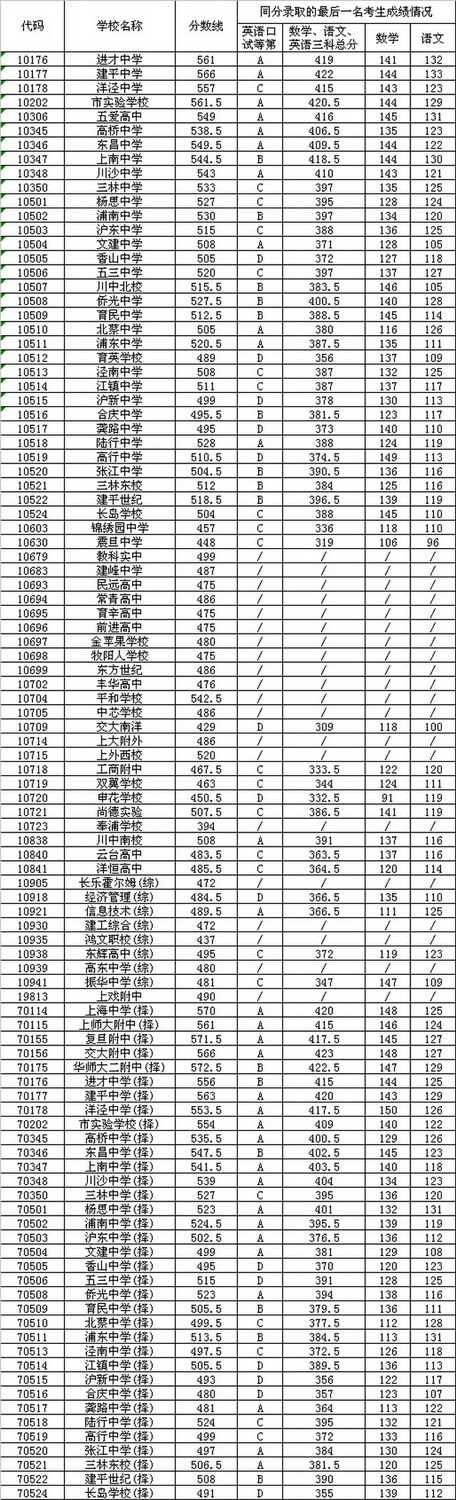 代码 学校名称 分数线 同分录取的最后一名考生成绩情况
英语口试等第 数学、语文、英语三科总分 数学 语文
10176 进才中学 561 A 419 141 132
10177 建平中学 566 A 422 144 133
10178 洋泾中学 557 C 415 143 123
10202 市实验学校 561.5 A 420.5 144 129
10306 五爱高中 549 A 416 145 131
10345 高桥中学 538.5 A 406.5 135 123
10346 东昌中学 549.5 A 409.5 144 122
10347 上南中学 544.5 B 418.5 144 130
10348 川沙中学 543 A 410 143 121
10350 三林中学 533 C 397 135 125
10501 杨思中学 527 C 395 128 124
10502 浦南中学 530 B 397 134 120
10503 沪东中学 515 C 388 136 125
10504 文建中学 508 A 371 128 105
10505 香山中学 505 D 372 127 118
10506 五三中学 520 C 397 137 127
10507 川中北校 515.5 B 383.5 146 105
10508 侨光中学 527.5 B 400.5 140 128
10509 育民中学 512.5 B 388.5 145 114
10510 北蔡中学 505 A 380 116 126
10511 浦东中学 520.5 A 387.5 135 111
10512 育英学校 489 D 356 137 109
10513 泾南中学 508 C 387 132 125
10514 江镇中学 511 C 387 137 117
10515 沪新中学 499 D 378 130 113
10516 合庆中学 495.5 B 381.5 123 117
10517 龚路中学 495 D 373 140 110
10518 陆行中学 528 A 388 124 119
10519 高行中学 510.5 D 374.5 149 113
10520 张江中学 504.5 B 390.5 136 116
10521 三林东校 512 B 384 125 116
10522 建平世纪 518.5 B 396.5 139 119
10524 长岛学校 504 C 388 145 110
10603 锦绣园中学 457 C 336 118 110
10630 震旦中学 448 C 319 106 96
10679 教科实中 499 / / / /
10683 建峰中学 487 / / / /
10693 民远高中 475 / / / /
10694 常青高中 486 / / / /
10695 育辛高中 475 / / / /
10696 前进高中 475 / / / /
10697 金苹果学校 480 / / / /
10698 牧阳人学校 475 / / / /
10699 东方世纪 486 / / / /
10702 丰华高中 476 / / / /
10704 平和学校 542.5 / / / /
10705 中芯学校 486 / / / /
10709 交大南洋 429 D 309 118 100
10714 上大附外 486 / / / /
10715 上外西校 520 / / / /
10718 工商附中 467.5 C 333.5 122 120
10719 双翼学校 463 C 344 124 111
10720 申花学校 450.5 D 332.5 91 119
10721 尚德实验 507.5 C 386.5 141 119
10723 奉浦学校 394 / / / /
10838 川中南校 508 A 391 137 116
10840 云台高中 483.5 C 363.5 137 116
10841 洋恒高中 485.5 C 364.5 120 114
10905 长乐霍尔姆(综) 472 / / / /
10918 经济管理(综) 484.5 D 366.5 135 110
10921 信息技术(综) 489.5 A 366.5 111 125
10930 建工综合(综) 472 / / / /
10935 鸿文职校(综) 437 / / / /
10938 东辉高中(综) 495 C 372 119 123
10939 高东中学(综) 480 / / / /
10941 振华中学(综) 481 C 347 147 109
19813 上戏附中 490 / / / /
70114 上海中学(择) 570 A 420 148 125
70115 上师大附中(择) 561 A 415 146 124
70155 复旦附中(择) 571.5 A 417.5 145 127
70156 交大附中(择) 566 A 423 148 127
70175 华师大二附中(择) 572.5 B 422.5 147 129
70176 进才中学(择) 556 B 415 144 125
70177 建平中学(择) 563 A 420 143 129
70178 洋泾中学(择) 553.5 A 417.5 150 126
70202 市实验学校(择) 554 A 409 140 122
70345 高桥中学(择) 535.5 A 400.5 129 126
70346 东昌中学(择) 547.5 B 402.5 145 123
70347 上南中学(择) 541.5 A 403.5 140 118
70348 川沙中学(择) 539 A 404 134 123
70350 三林中学(择) 527 C 395 136 120
70501 杨思中学(择) 523 A 401 132 131
70502 浦南中学(择) 524.5 A 395.5 139 119
70503 沪东中学(择) 502.5 A 376.5 136 112
70504 文建中学(择) 499 A 381 129 108
70505 香山中学(择) 495 D 370 120 123
70506 五三中学(择) 515 D 391 128 125
70508 侨光中学(择) 523 A 394 138 116
70509 育民中学(择) 505.5 B 379.5 136 111
70510 北蔡中学(择) 499.5 C 377.5 112 128
70511 浦东中学(择) 513.5 B 384.5 113 131
70513 泾南中学(择) 497.5 C 372.5 126 118
70514 江镇中学(择) 505.5 D 389.5 136 113
70515 沪新中学(择) 493 D 356 122 117
70516 合庆中学(择) 480 D 357 123 107
70517 龚路中学(择) 481 A 364 113 122
70518 陆行中学(择) 524 C 395 132 121
70519 高行中学(择) 499 C 372 133 116
70520 张江中学(择) 497 A 384 130 124
70521 三林东校(择) 506.5 A 381.5 120 125
70522 建平世纪(择) 508 B 390 136 115
70524 长岛学校(择) 491 D 355 139 112